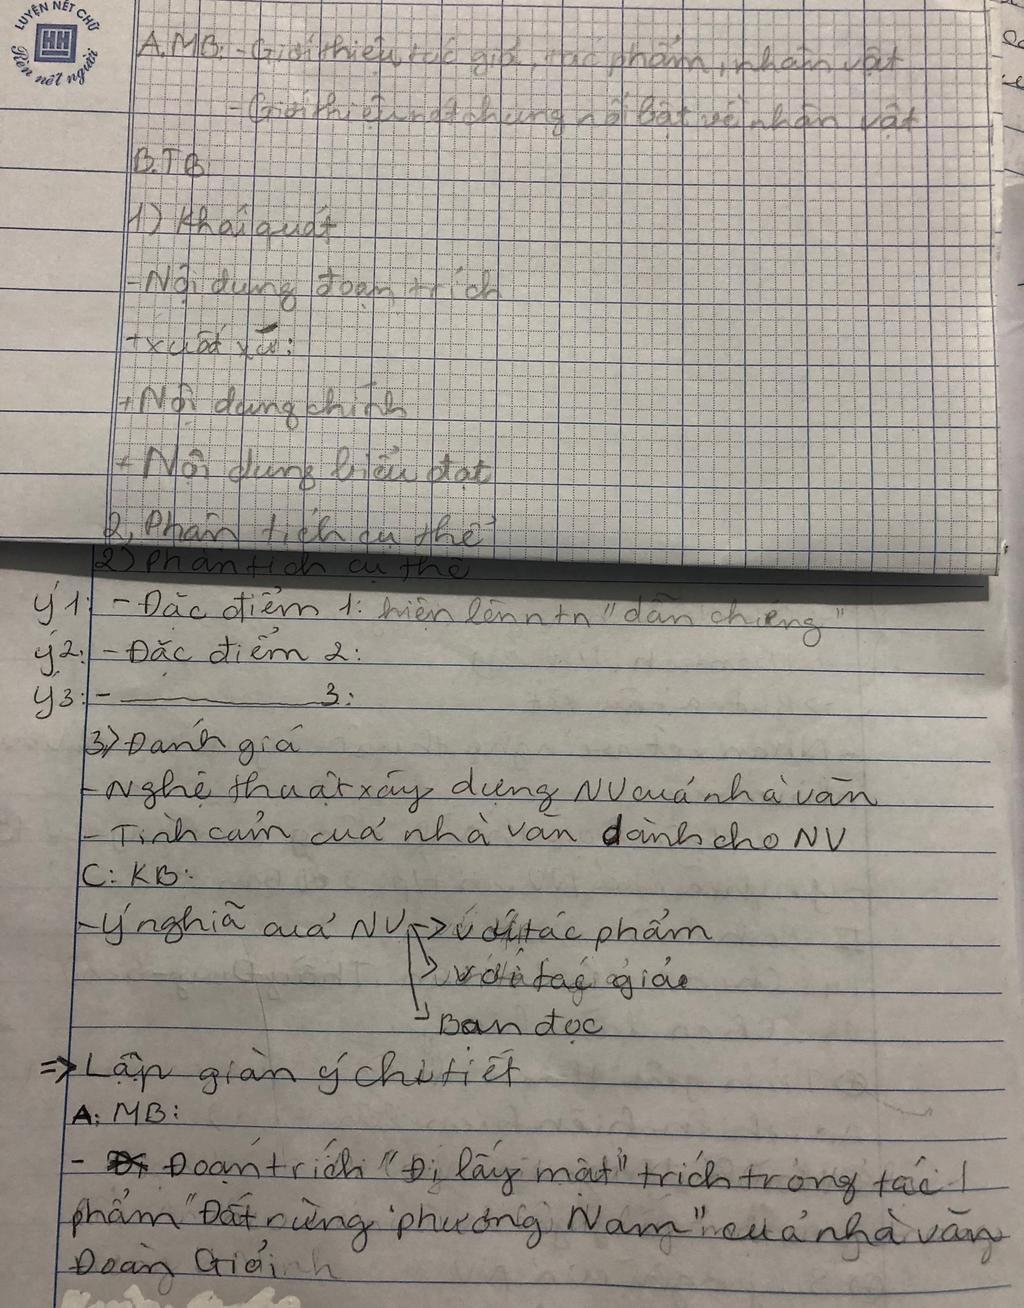 LUYỆN NÉT CHỮ
HH
Rèn nết người
A.MB: - Giới thiệu tác giả, tác phẩm, nhân vật
- Giới thiệu nét chung nổi bật về nhân vật
B.TB
1) Khái quát
- Nội dung đoạn trích
+ xuất xứ:
+ Nội dung chính
+ Nội dung biểu đạt
2, Phân tích cụ thể
2) Phân tích cụ thể
ý1: - Đặc điểm 1: hiện lên ntn "dẫn chứng"
ý2: - Đặc điểm 2:
ý3: - 3:
3) Đánh giá
- Nghệ thuật xây dựng NV của nhà văn
- Tình cảm của nhà văn dành cho NV
C: KB:
- Ý nghĩa của NV -> với tác phẩm
> với tác giả
Bạn đọc
=> Lập giàn ý chi tiết
A: MB:
- Đoạn trích "Đi lấy mật" trích trong tác
phẩm "Đất rừng phương Nam" của nhà văn
Đoàn Giỏi